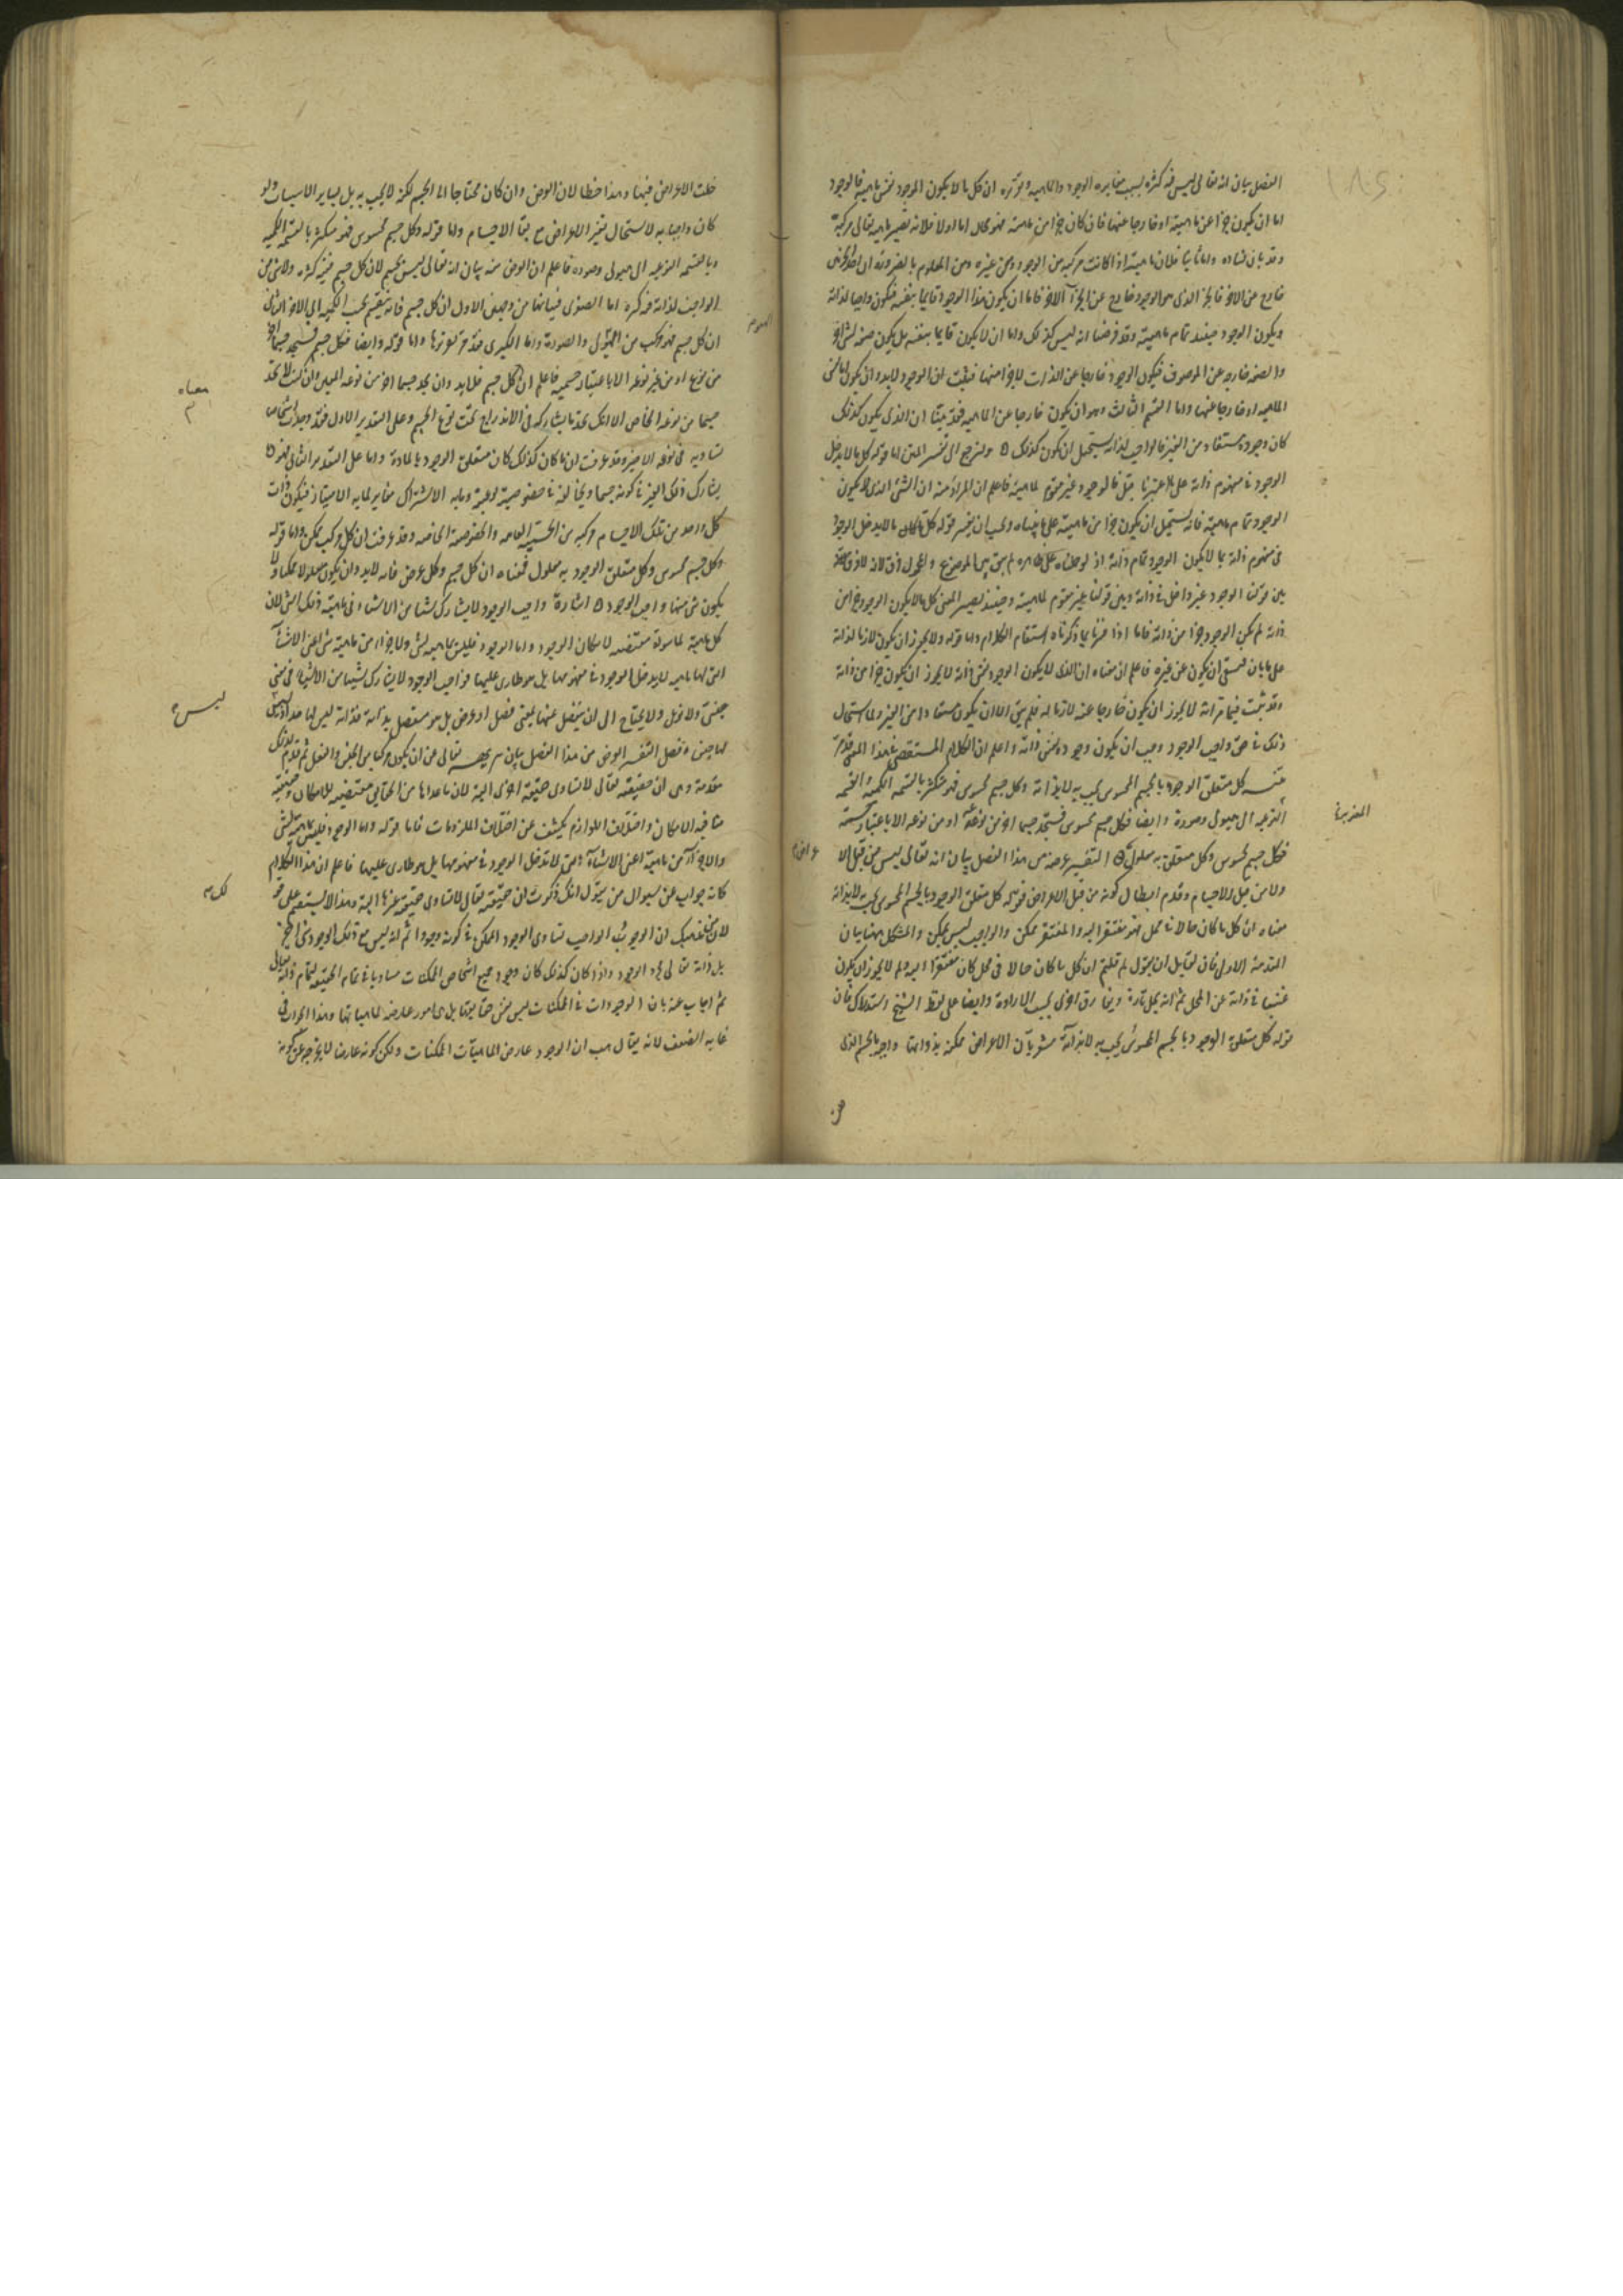 الفصل بيان انه تعالى ليس فيه كثرة بسبب مغايرة الوجود والماهية وتقريره ان كل ما لا يكون الوجود نفس ماهيته فالوجود
اما ان يكون جزا من ماهيته او خارجا عنها فان كان جزا من ماهيته فهو محال اما اولا فلانه تصير ماهيته تعالى مركبة
وقد بان فساده واما ثانيا فلان ماهيته اذا كانت مركبة من الوجود ومن غيره ومن المعلوم بالضرورة ان احد الجزئين
خارج عن الاخر فالجزء الذى هو الوجود خارج عن الجزء الآخر فاما ان يكون هذا الوجود قايما بنفسه فيكون واجبا لذاته
ويكون الوجود حينئذ تمام ماهيته وقد فرضنا انه ليس كذلك واما ان لا يكون قايما بنفسه بل يكون صفة لشى اخر
والصفة خارجة عن الموصوف فيكون الوجود خارجا عن الذات لا جزا منها فثبت ان الوجود لابد وان يكون اما نفس
الماهية او خارجا عنها واما القسم الثالث وهو ان يكون خارجا عن الماهية فقد بينا ان الذى يكون كذلك
كان وجوده مستفاد من الغير فالواجب لذاته يستحيل ان يكون كذلك ولنرجع الى تفسير المتن اما قوله كل ما لا يدخل
الوجود فى مفهوم ذاته على ما اعتبرنا قبل فالوجود غير مقوم لماهيته فاعلم ان المراد منه ان الشى الذى لا يكون
الوجود تمام ماهيته فانه يستحيل ان يكون جزا من ماهيته على ما بيناه ويجب ان يفسر قوله كل ما لا يدخل الوجود
فى مفهوم ذاته بما لا يكون الوجود تمام ذاته اذ لو حملناه على ظاهره لم يبق بين الموضوع والمحمول فرق لانه لا فرق
بين قولنا الوجود غير داخل فى ذاته وبين قولنا غير مقوم لماهيته وحينئذ يصير المعنى كل ما لا يكون الوجود جزا من
ذاته لم يكن الوجود جزا من ذاته فاما اذا فسرنا بما ذكرناه استقام الكلام واما قوله ولا يجوز ان يكون لازما لذاته
على ما بان فبقى ان يكون عن غيره فاعلم ان معناه ان الذى لا يكون الوجود نفس ذاته لا يجوز ان يكون جزا من ذاته
وقد ثبت فيما مر انه لا يجوز ان يكون خارجا عنه لازما له فلم يبق الا ان يكون مستفادا من الغير ولما استحال
ذلك فى حق واجب الوجود وجب ان يكون وجوده نفس ذاته واعلم ان الكلام المستقصى فى هذا المعنى قد مر
تنبيه كل متعلق الوجود بالجسم المحسوس يجب به لا بذاته وكل جسم محسوس فهو متكثر بالقسمة الكمية وبالقسمة
المعنوية الى هيولى وصورة وايضا فكل جسم محسوس فستجد جسما اخر من نوعه او من غير نوعه الا باعتبار جسميته
فكل جسم محسوس وكل متعلق به معلول التفسير غرضه من هذا الفصل بيان انه تعالى ليس من قبيل الاعراض
ولا من قبيل الاجسام وقدم ابطال كونه من قبيل الاعراض فقوله كل متعلق الوجود بالجسم المحسوس يجب به لا بذاته
معناه ان كل ما كان حالا فى محل فهو مفتقر اليه والمفتقر ممكن والواجب ليس بممكن والمشكل ههنا بيان
المقدمة الاولى فان لقايل ان يقول لم قلتم ان كل ما كان حالا فى محل كان مفتقرا اليه ولم لا يجوز ان يكون
غنيا فى ذاته عن المحل ثم انه يحل تارة ويفارق اخرى بحسب الارادة وايضا على لفظ الشيخ استدراك فان
قوله كل متعلق الوجود بالجسم المحسوس يجب به لا بذاته مشعر بان الاعراض ممكنة بذواتها واجبة بالجسم الذى
حلت الاعراض فيها وهذا خطا لان العرض وان كان محتاجا الى الجسم لكنه لا يجب به بل بساير الاسباب ولو
كان واجبا به لاستحال تغير الاعراض مع بقا الاجسام واما قوله وكل جسم محسوس فهو متكثر بالقسمة الكمية
وبالقسمة المعنوية الى هيولى وصورة فاعلم ان الغرض منه بيان انه تعالى ليس بجسم لان كل جسم ففيه كثرة ولا شى من
الواجب لذاته فيه كثرة اما الصغرى فبيانها من وجهين الاول ان كل جسم فانه ينقسم بحسب الكمية الى الاجزا الثانى
ان كل جسم فهو مركب من الهيولى والصورة واما الكبرى فقد مر تقريرها واما قوله وايضا فكل جسم فستجد جسما اخر
من نوعه او من غير نوعه الا باعتبار جسميته فاعلم ان كل جسم فلابد وان يوجد جسما اخر من نوعه المعين وان كنت لا تجد
جسما من نوعه الخاص الا انك تجد ما يشاركه فى الاندراج تحت نوع الجسم وعلى التقدير الاول فقد وجدت اشخاص
تساويه فى نوعه الاخير وقد عرفت ان ما كان كذلك كان متعلق الوجود بالمادة واما على التقدير الثانى فهو
يشارك ذلك الغير فى كونه جسما ويخالفه فى خصوصية نوعيته وما به الاشتراك مغاير لما به الامتياز فيكون ذات
كل واحد من تلك الاجسام مركبة من الجسمية العامة والخصوصية الخاصة وقد عرفت ان كل مركب ممكن واما قوله
وكل جسم محسوس وكل متعلق الوجود به معلول فمعناه ان كل جسم وكل عرض فانه لابد وان يكون معلولا ممكنا ولا
يكون شى منها واجب الوجود اشارة واجب الوجود لا يشارك شيا من الاشياء فى ماهية ذلك الشى لان
كل ماهية لما سواه مقتضية لامكان الوجود واما الوجود فليس بماهية لشى ولا جزا من ماهية شى اعنى الاشيا
التى لها ماهية لا يدخل الوجود فى مفهومها بل هو طارى عليها فواجب الوجود لا يشارك شيا من الاشياء فى معنى
جنسى ولا نوعى ولا يحتاج الى ان ينفصل عنها بمعنى فصلى او عرضى بل هو منفصل بذاته فذاته ليس لها حد اذ ليس
لها جنس وفصل التفسير الغرض من هذا الفصل بيان تنزيهه تعالى عن ان يكون مركبا من الجنس والفصل ثم قدم لذلك
مقدمة وهى ان حقيقته تعالى لا تساوى حقيقة اخرى البتة لان ما عداها من الحقايق مقتضية للامكان وحقيقته
منافية للامكان واختلاف اللوازم يكشف عن اختلاف الملزومات فاما قوله واما الوجود فليس بماهية لشى
ولا جزء من ماهية اعنى الاشيا التى لا تدخل الوجود فى مفهومها بل هو طارى عليها فاعلم ان هذا الكلام
كانه جواب عن سوال من يقول انك ذكرت ان حقيقته تعالى لا تساوى حقيقة غيرها البتة وهذا لا يستقيم على قولك
لان مذهبك ان الوجود فى الواجب تساوى الوجود الممكن فى كونه وجودا ثم انه ليس مع ذلك الوجود شى اخر
بل ذاته تعالى مجرد الوجود واذا كان كذلك كان وجود جميع اشخاص الممكنات مساويا فى تمام الحقيقة لتمام ذاته تعالى
ثم اجاب عنه بان الوجودات فى الممكنات ليس نفس حقايقها بل هى امور عارضة لماهياتها وهذا الجواب فى
غاية الضعف لانه يقال هب ان الوجود عارض لماهيات الممكنات ولكن كونه عارضا لا يخرجه عن كونه